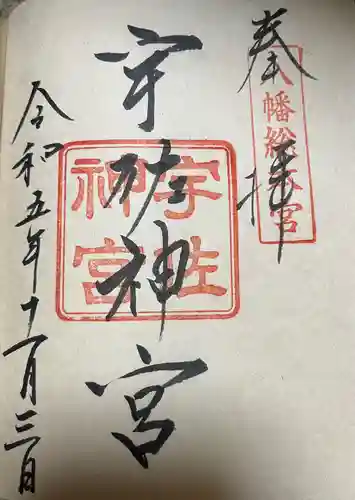 奉拝
八幡総本宮
宇佐神宮
宇佐神宮
令和五年十一月三日